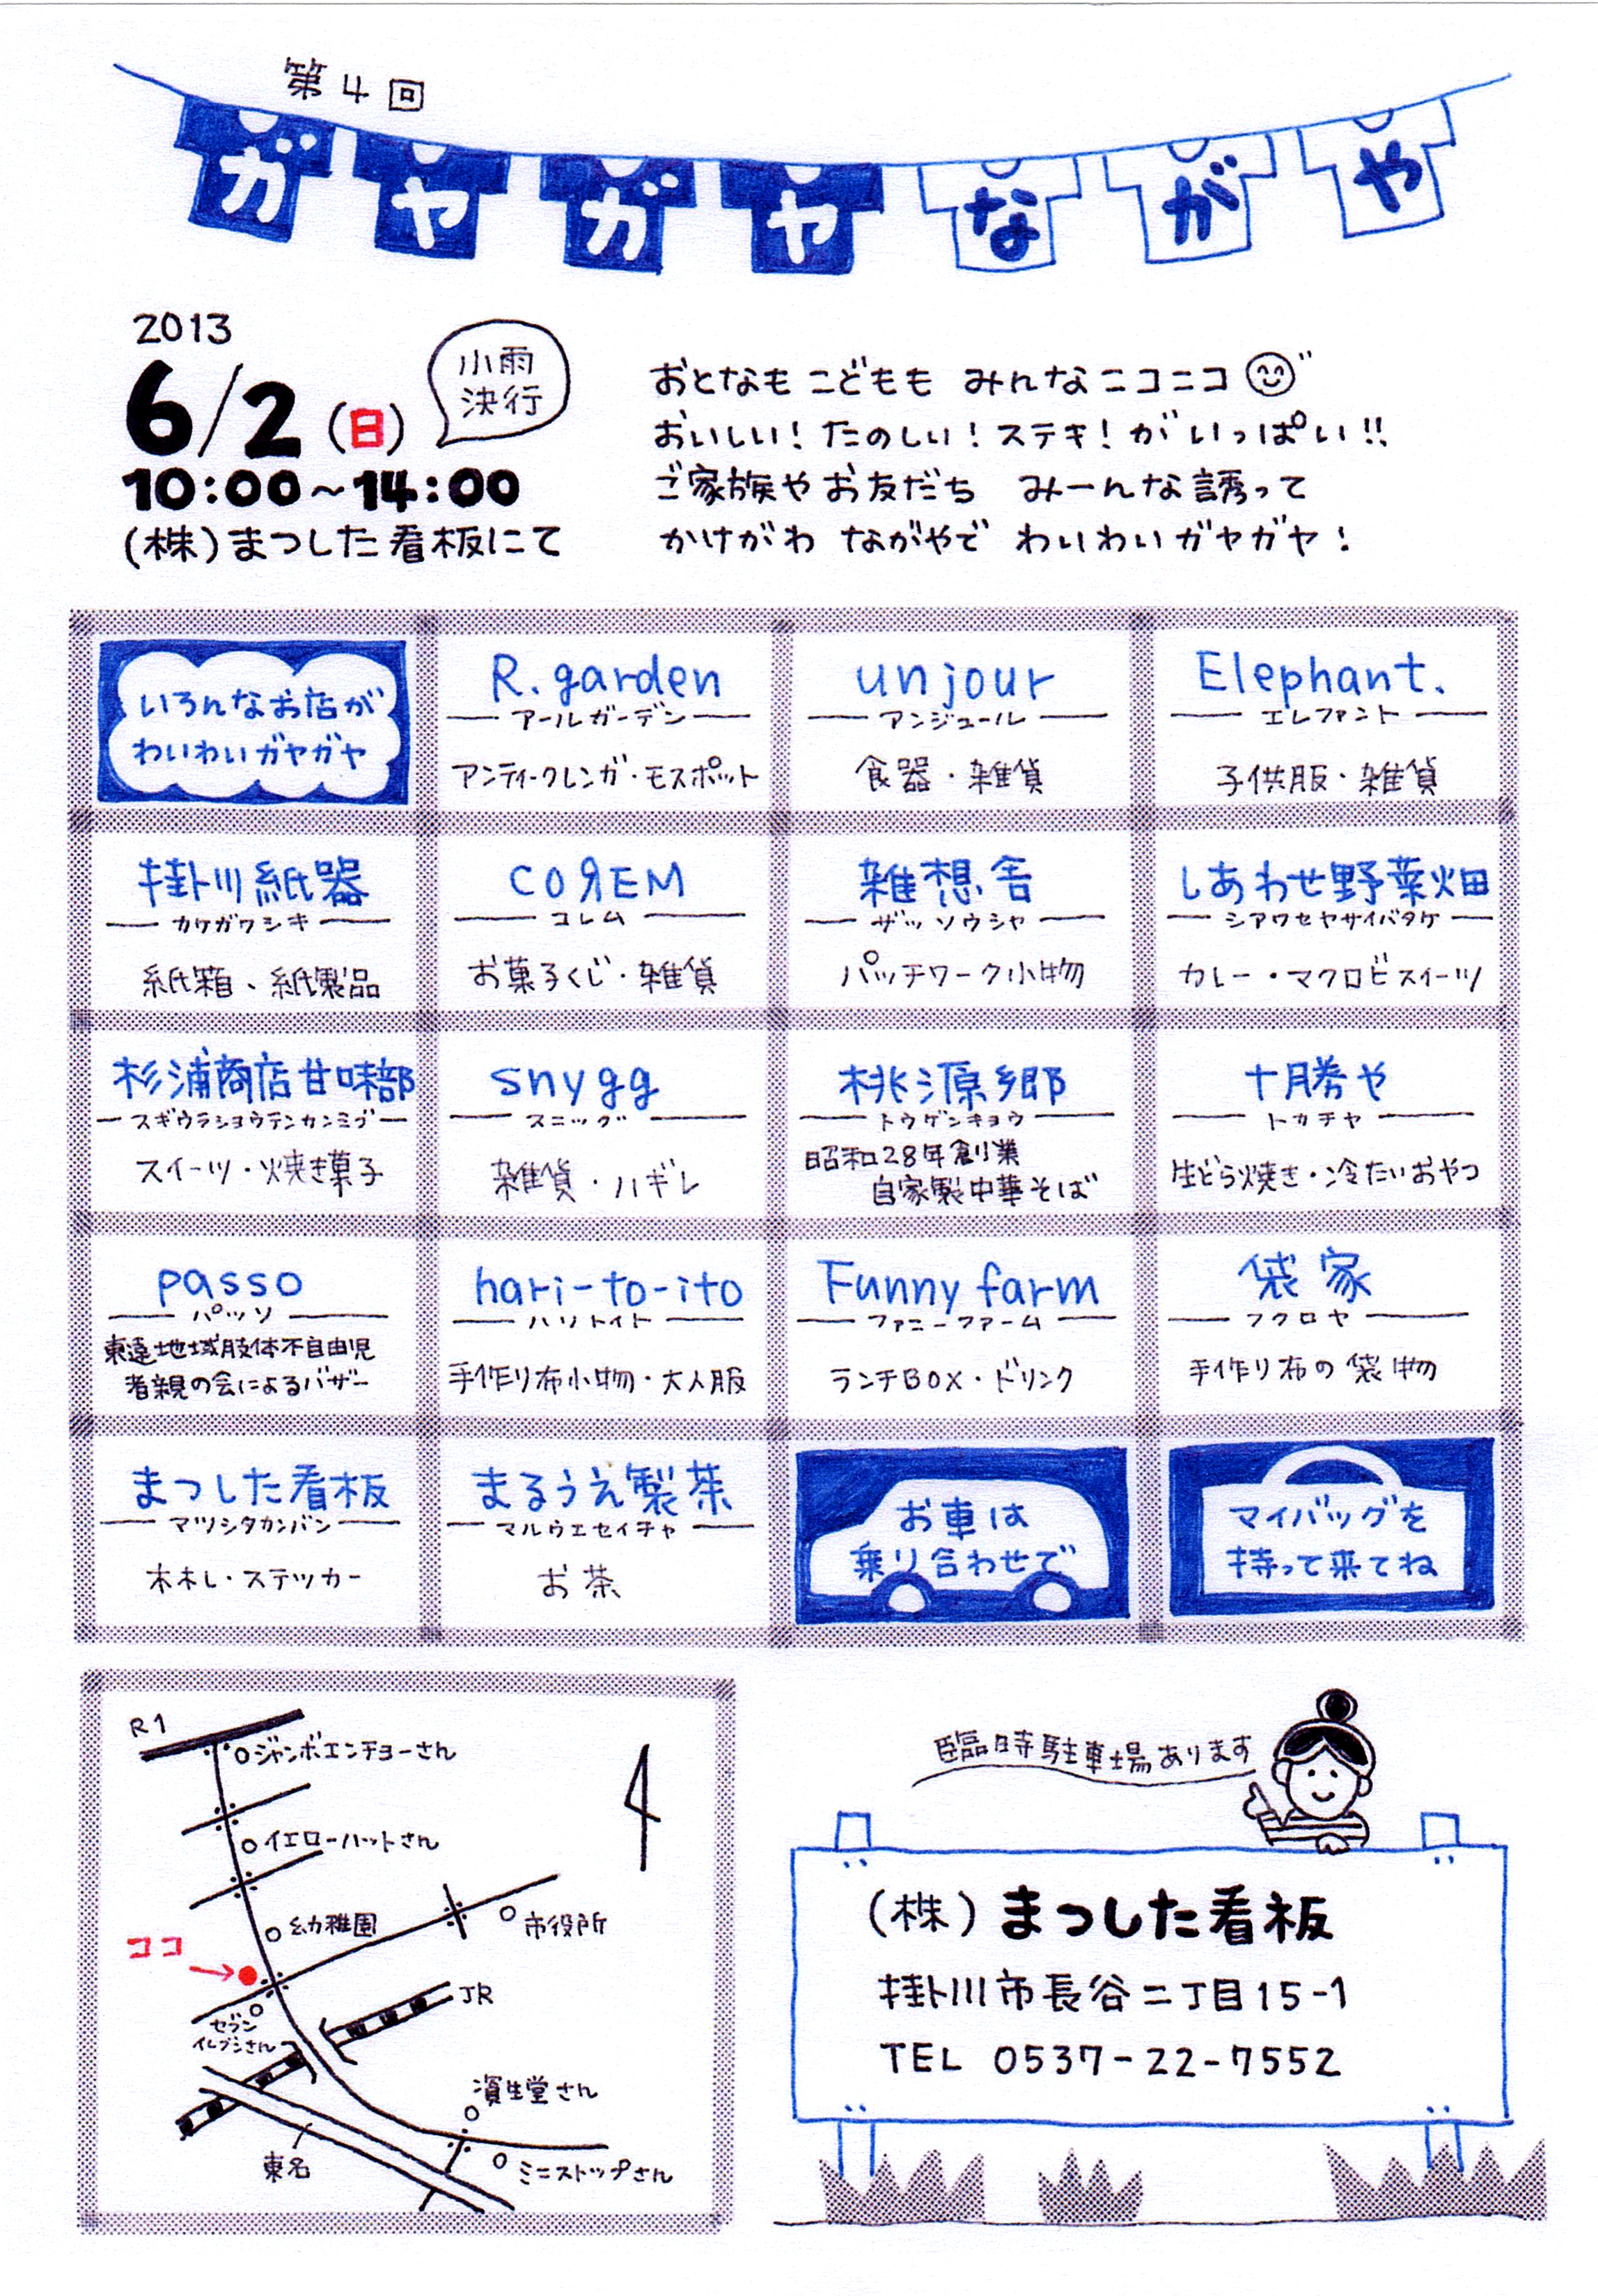 第4回
ガヤガヤながや
2013
6/2(日)
小雨
決行
10:00~14:00
(株)まつした看板にて
おとなも こどもも みんなニコニコ
おいしい!たのしい!ステキ!が いっぱい!!
ご家族や お友だち みーんな誘って
かけがわ ながやで わいわいガヤガヤ!
いろんなお店が
わいわいガヤガヤ
R.garden
アールガーデン
アンティークレンガ・モスポット
un jour
アンジュール
食器・雑貨
Elephant.
エレファント
子供服・雑貨
掛川紙器
カケガワシキ
紙箱、紙製品
COЯEM
コレム
お菓子くじ・雑貨
雑想舎
ザッソウシャ
パッチワーク小物
しあわせ野菜畑
シアワセヤサイバタケ
カレー・マクロビスイーツ
杉浦商店甘味部
スギウラショウテンカンミブ
スイーツ・焼き菓子
snygg
スニッグ
雑貨・ハギレ
桃源郷
トウゲンキョウ
昭和28年創業
自家製中華そば
十勝や
トカチヤ
生どら焼き・冷たいおやつ
passo
パッソ
東遠地域肢体不自由児
者親の会によるバザー
hari-to-ito
ハリトイト
手作り布小物・大人服
Funny farm
ファニーファーム
ランチBOX・ドリンク
袋家
フクロヤ
手作り布の袋物
まつした看板
マツシタカンバン
木札・ステッカー
まるうえ製茶
マルウエセイチャ
お茶
お車は
乗り合わせで
マイバッグを
持って来てね
R1
ジャンボエンチョーさん
イエローハットさん
幼稚園
市役所
ココ
セブン
イレブンさん
JR
資生堂さん
東名
ミニストップさん
臨時駐車場あります
(株)まつした看板
掛川市長谷二丁目15-1
TEL 0537-22-7552